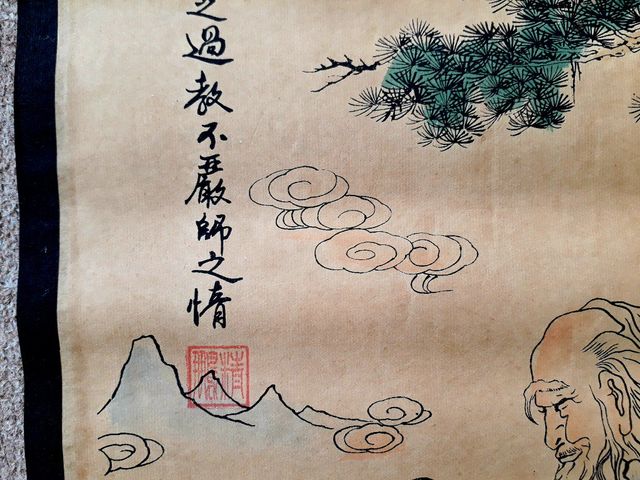 之過教不嚴師之惰